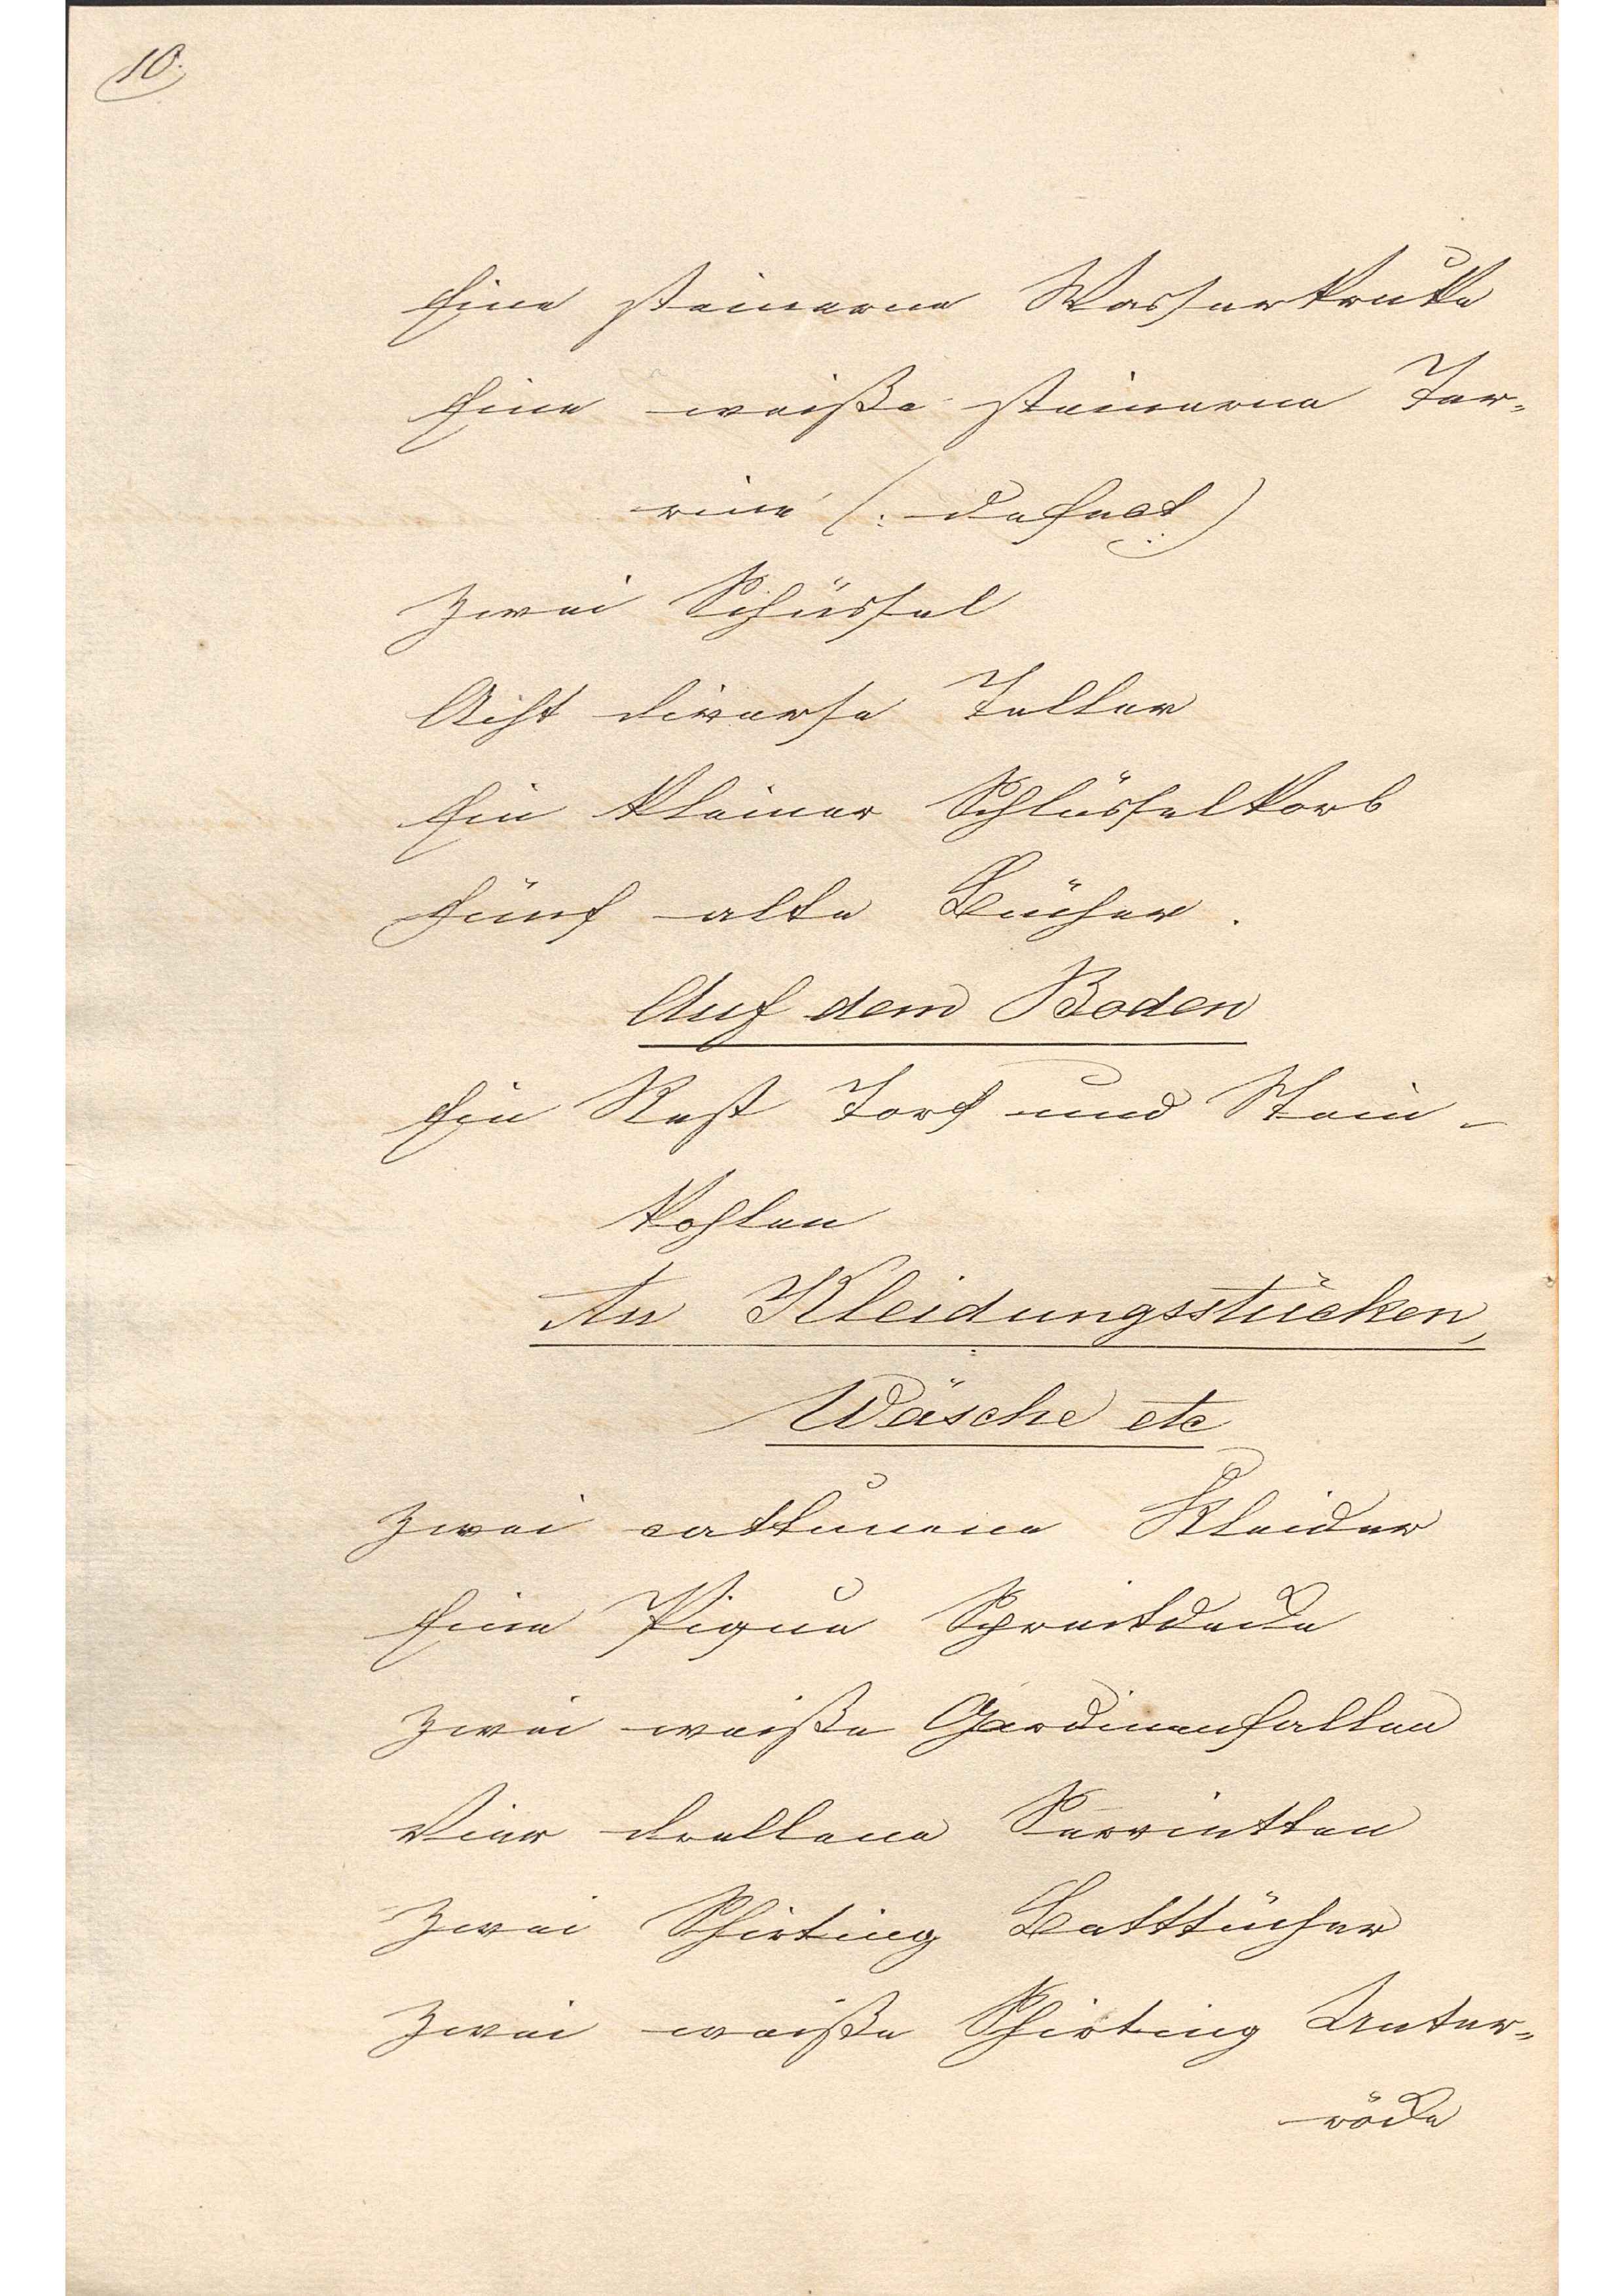 10.
Eine steinerne Wasserkruke
Eine weiße steinerne Ter-
rine (: defect :)
Zwei Schüssel
Acht diverse Teller
Ein kleiner Schlüsselkorb
Fünf alte Bücher.
Auf dem Boden
Ein Rest Torf und Stein-
kohlen
An Kleidungsstücken,
Wäsche etc
Zwei cattunene Kleider
Eine Pique Spreitdecke
Zwei weiße Gardinenfallen
Vier drellene Servietten
Zwei Shirting Betttücher
Zwei weiße Shirting Unter-
röcke